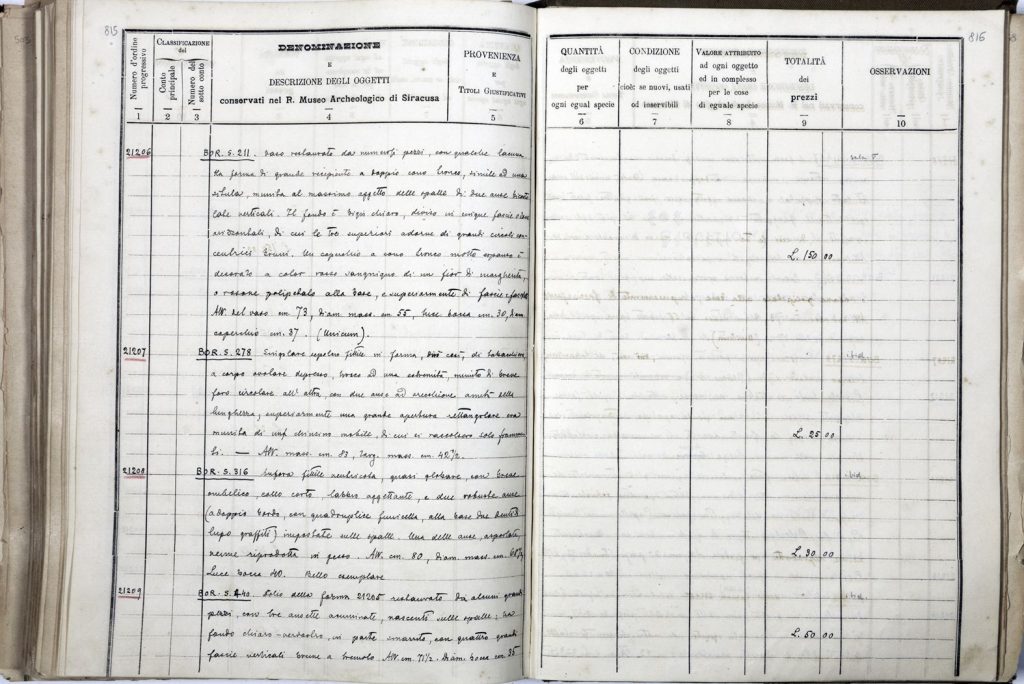 815
CLASSIFICAZIONE
del
Numero d'ordine progressivo
Conto principale
Numero del sotto conto
DENOMINAZIONE
E
DESCRIZIONE DEGLI OGGETTI
conservati nel R. Museo Archeologico di Siracusa
PROVENIENZA
E
TITOLI GIUSTIFICATIVI
1 2 3 4 5
21206 BOR. S. 211. Vaso restaurato da numerosi pezzi, con qualche lacuna
ha forma di grande recipiente a doppio cono tronco, simile ad una
situla, munita al massimo aggetto delle spalle di due anse
verticali. Il fondo è grigio chiaro, diviso in cinque fascie
orizzontali, di cui le tre superiori adorne di grandi circoli con-
centrici bruni. Un coperchio a cono tronco molto espanso è
decorato a color rosso sanguigno di un fior di margherita,
o rosone polipetalo alla base, e superiormente di fascie e
Alt. del vaso cm. 73, diam. mass. cm. 55, luce bocca cm. 30, diam
coperchio cm. 37. (Unicum).
21207 BOR. S. 278 Singolare sepolcro fittile in forma, così, di
a corpo ovolare depresso, ad una estremità, munito di breve
foro circolare all'altra, con due anse ad a metà della
lunghezza, superiormente una grande apertura rettangolare era
munita di una chiusino mobile, di cui si raccolsero solo frammen-
ti. — Alt. mass. cm. 83, larg. mass. cm. 42½.
21208 BOR. S. 316 Anfora fittile ventricosa, quasi globare, con breve
ombelico, collo corto labbro aggettante, e due robuste anse
(a doppio bordo, con quadruplice funicella, alla base due denti di
lupo graffiti) impostate sulle spalle. Una delle anse, asportata,
venne riprodotta in gesso. Alt. cm. 80, diam. mass. cm.
Luce bocca 40. Bello esemplare
21209 BOR. S. 440. Dolio della forma 21205 restaurato da alcuni grandi
pezzi, con tre ansette acuminate, nascenti sulle spalle; su
fondo chiaro-verdastro, in parte smarrito, con quattro grandi
fascie verticali brune a tremolo. Alt. cm. 71½. Diam. bocca cm. 35
816
QUANTITÀ
degli oggetti
per
ogni egual specie
CONDIZIONE
degli oggetti
cioè: se nuovi, usati
od inservibili
VALORE ATTRIBUITO
ad ogni oggetto
ed in complesso
per le cose
di eguale specie
TOTALITÀ
dei
prezzi
OSSERVAZIONI
6 7 8 9 10
sala V
L. 150 00
ibid.
L. 25 00
ibid.
L. 30 00
ibid.
L. 50 00